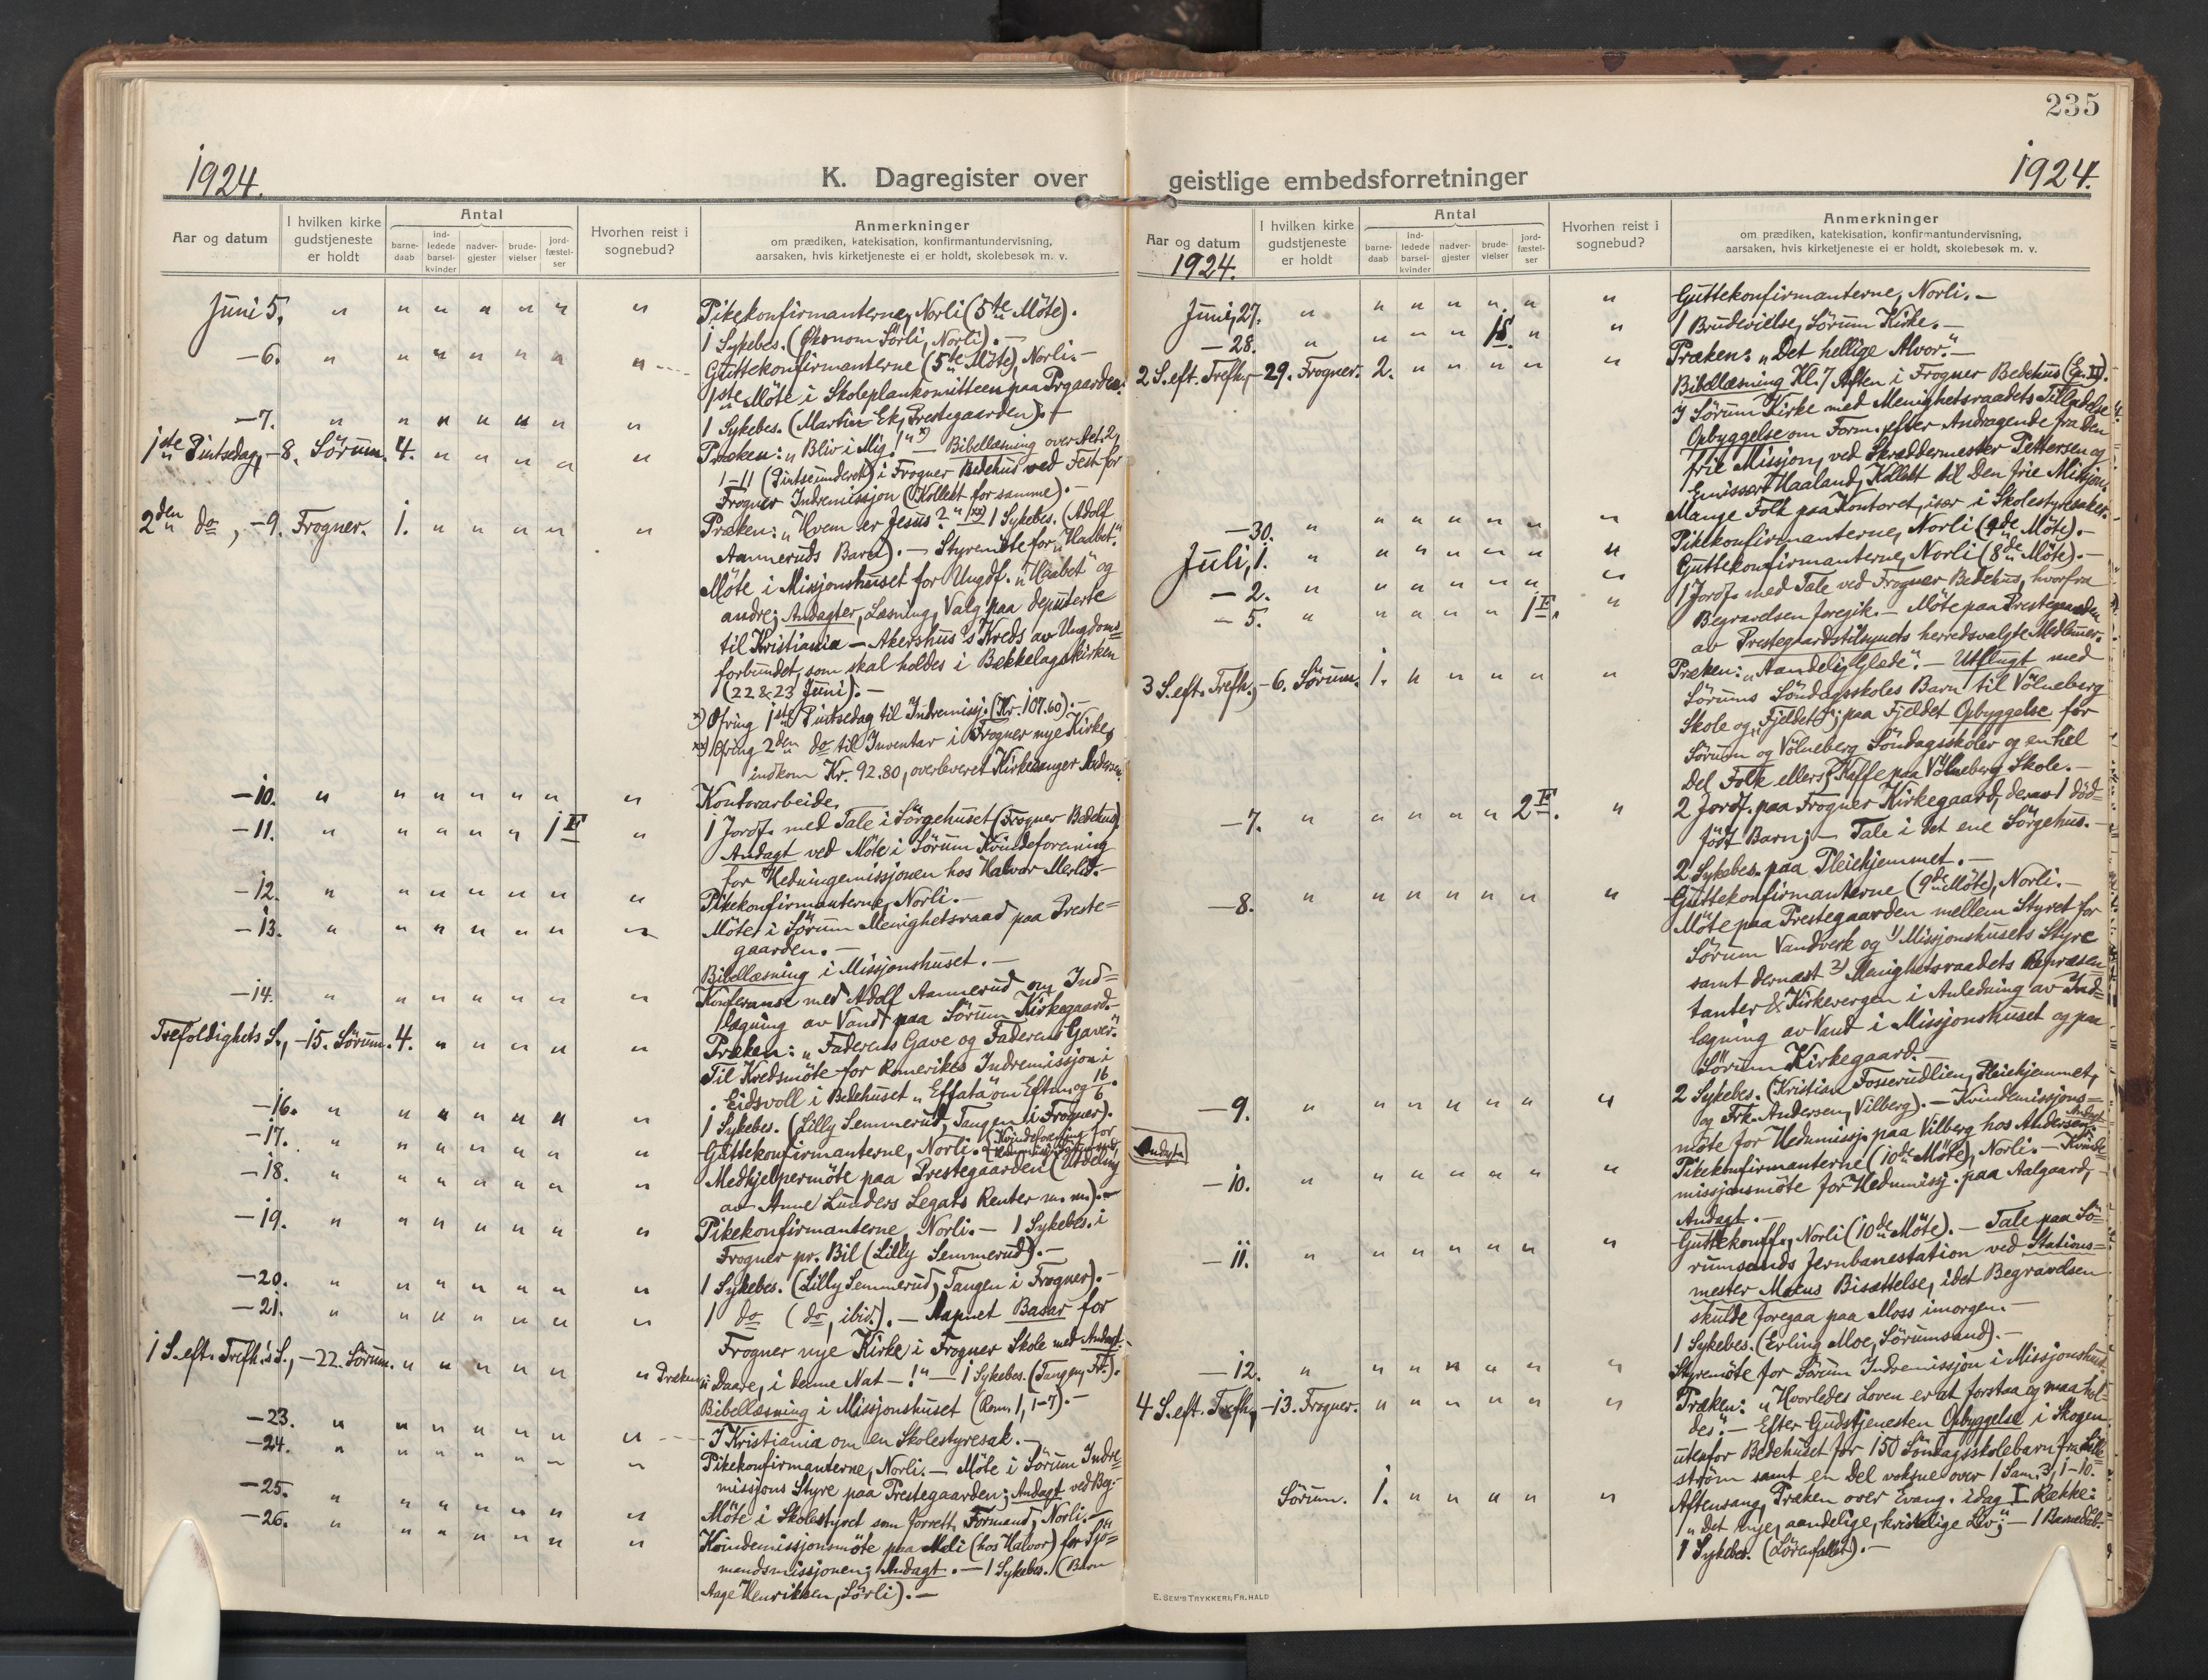 235
1924.
K. Dagregister over
geistlige embedsforretninger
1924.
Aar og datum
I hvilken kirke gudstjeneste er holdt
Antal
barnedaab
indledede barselkvinder
nadvergjester
brudevielser
jordfæstelser
Hvorhen reist i sognebud?
Anmerkninger
om prædiken, katekisation, konfirmantundervisning,
aarsaken, hvis kirketjeneste ei er holdt, skolebesøk m. v.
Juni 5. " " " " " " " Pikekonfirmanterne, Norli (5te Möte).
1 Sykebes. (Økonom Sörli, Norli).—
—6. " " " " " " " Guttekonfirmanterne (5te Möte), Norli.—
1ste Möte i Skoleplankomitteen paa Prgaarden.
—7. " " " " " " " 1 Sykebes. (Martin Ek, Prestegaarden).—
1ste Pintsedag, —8. Sörum. 4. " " " " " Præken: "Bliv i Mig!" x) — Bibellæsning over Act. 2,
1—11 (Pintseunderet) i Frogner Bedehus ved Fest for
Frogner Indremissjon (Kollekt for samme).—
2den do, —9. Frogner. 1. " " " " " Præken: "Hvem er Jesus?" xx) 1 Sykebes. (Adolf
Aanneruds Barn).— Styremöte for "Haabet".
Möte i Missjonshuset for Ungdf. "Haabet" og
andre; Andagter, Læsning, Valg paa deputerte
til Kristiania — Akershus's Kreds av Ungdoms=
forbundet, som skal holdes i Bekkelagskirken
(22 & 23 Juni).—
x) Ofring 1ste Pintsedag til Indremissj. (Kr. 107.60).—
xx) Ofring 2den do til Inventar i Frogner nye Kirke,
indkom Kr. 92.80, overleveret Kirkesanger Andersen.
—10. " " " " " " " Kontorarbeide.
—11. " " " " " 1 F " 1 Jordf. med Tale i Sörgehuset (Frogner Bedehus).
Andagt ved Möte i Sörum Kvindeforening
for Hedningemissjonen hos Halvor Merli.—
—12. " " " " " " " Pikekonfirmanterne, Norli.—
—13. " " " " " " " Möte i Sörum Menighetsraad paa Preste=
gaarden.—
Bibellæsning i Missjonshuset.—
—14. " " " " " " " Konferanse med Adolf Aannerud om Ind=
lægning av Vand paa Sörum Kirkegaard.—
Trefoldighets S., —15. Sörum. 4. " " " " " Præken: "Faderens Gave og Faderens Gaver."
Til Kredsmöte for Romerikes Indremissjon i
Eidsvoll i Bedehuset "Effata" om Eftm. og 16/6.
—16. " " " " " " " 1 Sykebes. (Lilly Semmerud, Tangen i Frogner).
—17. " " " " " " " Guttekonfirmanterne, Norli.— (Kvindeforening for
—18. " " " " " " " Medhjelpermöte paa Prestegaarden (Utdeling
av Anne Lunders Legats Renter m. m.).—
—19. " " " " " " " Pikekonfirmanterne, Norli.— 1 Sykebes. i
Frogner pr. Bil (Lilly Semmerud).—
—20. " " " " " " " 1 Sykebes. (Lilly Semmerud, Tangen i Frogner).—
—21. " " " " " " " 1 do (do, ibid.).— Aapnet Basar for
Frogner nye Kirke i Frogner Skole med Andagt.
1 S. eft. Trefh.'s S., —22. Sörum. " " " " " " Præken: "Daare, i denne Nat —!" — 1 Sykebes. (Tangen, Fr.).
Bibellæsning i Missjonshuset (Rom. 1, 1—7).—
—23. " " " " " " " I Kristiania om en Skolestyresak.—
—24. " " " " " " " Pikekonfirmanterne, Norli.— Möte i Sörum Indre=
missjons Styre paa Prestegaarden; Andagt ved Beg.
—25. " " " " " " " Möte i Skolestyret som forrett. Formand, Norli.—
—26. " " " " " " " Kvindemissjonsmöte paa Meli (hos Halvor) for Sjö=
mandsmissjonen; Andagt.— 1 Sykebes. (Barn
Aage Henriksen, Sörli).—
Aar og datum
1924.
I hvilken kirke gudstjeneste er holdt
Antal
barnedaab
indledede barselkvinder
nadvergjester
brudevielser
jordfæstelser
Hvorhen reist i sognebud?
Anmerkninger
om prædiken, katekisation, konfirmantundervisning,
aarsaken, hvis kirketjeneste ei er holdt, skolebesøk m. v.
Juni, 27. " " " " " " " Guttekonfirmanterne, Norli.—
—28. " " " " 1 S. " " 1 Brudevielse, Sörum Kirke.—
2 S. eft. Trefh., —29. Frogner. 2. " " " " " Præken: "Det hellige Alvor."—
Bibellæsning Kl. 7 Aften i Frogner Bedehus
I Sörum Kirke med Menighetsraadets Tilladelse
Opbyggelse om Form. efter Andragende fra Den
frie Missjon, ved Skræddermester Pettersen og
Emissær Haaland, Kollekt til Den frie Missjon.
—30. " " " " " " " Mange Folk paa Kontoret, især i Skolestyresaker.
Juli, 1. " " " " " " " Pikekonfirmanterne, Norli (9de Möte).—
—2. " " " " " " " Guttekonfirmanterne, Norli (8de Möte).—
—5. " " " " " 1 F. " 1 Jordf. med Tale ved Frogner Bedehus, hvorfra
Begravelsen foregik.— Möte paa Prestegaarden
av Prestegaardstilsynets herredsvalgte Medlemmer.
3 S. eft. Trefh., —6. Sörum. 1. " " " " " Præken: "Aandelig Glæde".— Utflugt med
Sörums Söndagsskoles Barn til Völneberg
Skole og "Fjeldet"; paa Fjeldet Opbyggelse for
Sörum og Völneberg Söndagsskoler og en hel
Del Folk ellers. Kaffe paa Völneberg Skole.—
—7. " " " " " 2 F. " 2 Jordf. paa Frogner Kirkegaard, derav 1 död=
född Barn;— Tale i det ene Sörgehus.—
2 Sykebes. paa Pleiehjemmet.—
—8. " " " " " " " Guttekonfirmanterne (9de Möte), Norli.—
Möte paa Prestegaarden mellem Styret for
Sörum Vandverk og 1) Missjonshusets Styre
samt dernæst 2) Menighetsraadets Repræsen=
tanter & Kirkevergen i Anledning av Ind=
lægning av Vand i Missjonshuset og paa
Sörum Kirkegaard.—
—9. " " " " " " " 2 Sykebes. (Kristian Fosserudlien, Pleiehjemmet,
og Frk. Andersen, Vilberg).— Kvindemissjons=
möte for Hedmissj. paa Vilberg hos Andersen. Andagt
Andagt
—10. " " " " " " " Pikekonfirmanterne (10de Möte), Norli.— Kvinde=
missjonsmöte for Hedmissj. paa Aalgaard,—
Andagt.—
—11. " " " " " " " Guttekonff., Norli (10de Möte).— Tale paa Sö=
rumsands Jernbanestation ved Stations=
mester Moens Bisættelse, idet Begravelsen
skulde foregaa paa Moss imorgen.—
1 Sykebes. (Erling Moe, Sörumsand).—
—12. " " " " " " " Styremöte for Sörum Indremissjon i Missjonshuset.
4 S. eft. Trefh., —13. Frogner. " " " " " " Præken: "Hvorledes Loven er at forstaa og maa hol=
des".— Efter Gudstjenesten Opbyggelse i Skogen
utenfor Bedehuset for 150 Söndagsskolebarn fra Lille=
ström samt en Del voksne over 1 Sam. 3, 1—10.
Sörum. 1. " " " " " Aftensang, Præken over Evang. idag I Række:
"Det nye, aandelige, kristelige Liv";— 1 Barnedåb.
1 Sykebes. (Sörenfallet).—
E. SEM'S TRYKKERI, FR.HALD